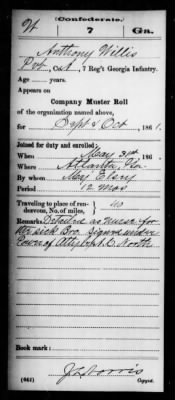 (Confederate.)
W 7 Ga.
Anthony Willis
Pvt, Co. 7 Reg't Georgia Infantry.
Age years.
Appears on
Company Muster Roll
of the organization named above,
for Sept & Oct, 1861.
Joined for duty and enrolled:
When May 31st, 186
Where Atlanta, Ga.
By whom May Elsey
Period 12 mos
Traveling to place of ren-
dezvous, No. of miles, 40
Remarks: Detailed as nurse for
sick Bro. signed under
Power of Atty by
Book mark:
(641) Copyist.